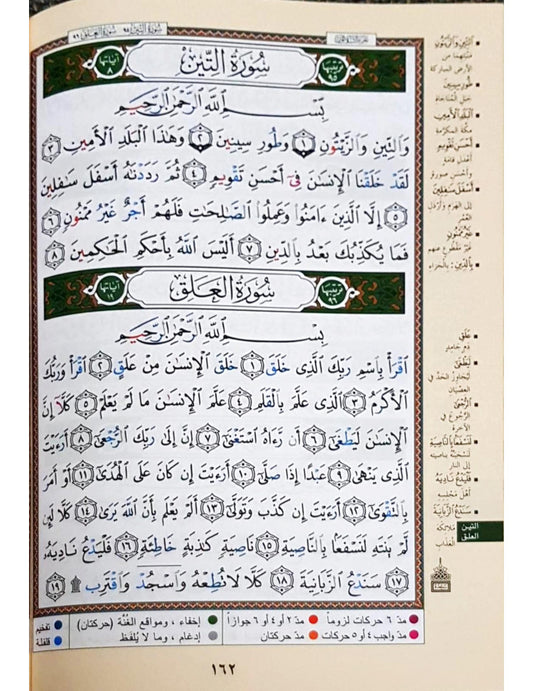 سُورَةُ التِّين ٩٥ سُورَةُ العَلَق ٩٦
تَرتيبها ٩٥ سُورَةُ التِّينِ آيَاتُها ٨
بِسْمِ ٱللَّهِ ٱلرَّحْمَٰنِ ٱلرَّحِيمِ
وَٱلتِّينِ وَٱلزَّيْتُونِ ١ وَطُورِ سِينِينَ ٢ وَهَٰذَا ٱلْبَلَدِ ٱلْأَمِينِ ٣
لَقَدْ خَلَقْنَا ٱلْإِنسَٰنَ فِىٓ أَحْسَنِ تَقْوِيمٍ ٤ ثُمَّ رَدَدْنَٰهُ أَسْفَلَ سَٰفِلِينَ
٥ إِلَّا ٱلَّذِينَ ءَامَنُوا۟ وَعَمِلُوا۟ ٱلصَّٰلِحَٰتِ فَلَهُمْ أَجْرٌ غَيْرُ مَمْنُونٍ ٦
فَمَا يُكَذِّبُكَ بَعْدُ بِٱلدِّينِ ٧ أَلَيْسَ ٱللَّهُ بِأَحْكَمِ ٱلْحَٰكِمِينَ ٨
تَرتيبها ٩٦ سُورَةُ العَلَقِ آيَاتُها ١٩
بِسْمِ ٱللَّهِ ٱلرَّحْمَٰنِ ٱلرَّحِيمِ
ٱقْرَأْ بِٱسْمِ رَبِّكَ ٱلَّذِى خَلَقَ ١ خَلَقَ ٱلْإِنسَٰنَ مِنْ عَلَقٍ ٢ ٱقْرَأْ وَرَبُّكَ
ٱلْأَكْرَمُ ٣ ٱلَّذِى عَلَّمَ بِٱلْقَلَمِ ٤ عَلَّمَ ٱلْإِنسَٰنَ مَا لَمْ يَعْلَمْ ٥ كَلَّآ إِنَّ
ٱلْإِنسَٰنَ لَيَطْغَىٰٓ ٦ أَن رَّءَاهُ ٱسْتَغْنَىٰٓ ٧ إِنَّ إِلَىٰ رَبِّكَ ٱلرُّجْعَىٰٓ ٨ أَرَءَيْتَ
ٱلَّذِى يَنْهَىٰ ٩ عَبْدًا إِذَا صَلَّىٰٓ ١٠ أَرَءَيْتَ إِن كَانَ عَلَى ٱلْهُدَىٰٓ ١١ أَوْ أَمَرَ
بِٱلتَّقْوَىٰٓ ١٢ أَرَءَيْتَ إِن كَذَّبَ وَتَوَلَّىٰٓ ١٣ أَلَمْ يَعْلَم بِأَنَّ ٱللَّهَ يَرَىٰ ١٤ كَلَّا لَئِن
لَّمْ يَنتَهِ لَنَسْفَعًۢا بِٱلنَّاصِيَةِ ١٥ نَاصِيَةٍ كَٰذِبَةٍ خَاطِئَةٍ ١٦ فَلْيَدْعُ نَادِيَهُۥ
١٧ سَنَدْعُ ٱلزَّبَانِيَةَ ١٨ كَلَّا لَا تُطِعْهُ وَٱسْجُدْ وَٱقْتَرِب ۩ ١٩
التِّينِ وَالزَّيْتُونِ
مَنْبَتِهِمَا مِنَ
الأرضِ المباركة
طُورِ سِينِينَ
جبل المُناجاة
البَلَدِ الأَمِينِ
مكّة المكرّمة
أَحْسَنِ تَقْوِيمٍ
أعدَل قامة
وأحسَنِ صورة
أَسْفَلَ سَافِلِينَ
إلى الهَرَم وأرذل
العُمُر
غَيْرُ مَمْنُونٍ
غَيْرُ مَقْطُوعٍ عنهم
بِالدِّينِ : بالجزاء
عَلَقٍ
دَمٍ جَامِدٍ
لَيَطْغَى
لَيُجَاوِزُ الحَدَّ في
العِصْيَانِ
الرُّجْعَى
الرُّجُوعَ في
الآخرة
لَنَسْفَعًا بِالنَّاصِيَةِ
لَنَسْحَبَنَّهُ بِنَاصِيَتِه
إلى النار
فَلْيَدْعُ نَادِيَهُ
أهلَ مَجْلِسِه
سَنَدْعُ الزَّبَانِيَةَ
مَلائكةَ
العَذَاب
التين
العلق
مدّ ٦ حركات لزوماً مدّ ٢ أو ٤ أو ٦ جوازاً إخفاء ، ومواقع الغُنَّة (حركتان) تفخيم
مدّ واجب ٤ أو ٥ حركات مدّ حركتان إدغام ، وما لا يُلفَظ قلقلة
١٦٢